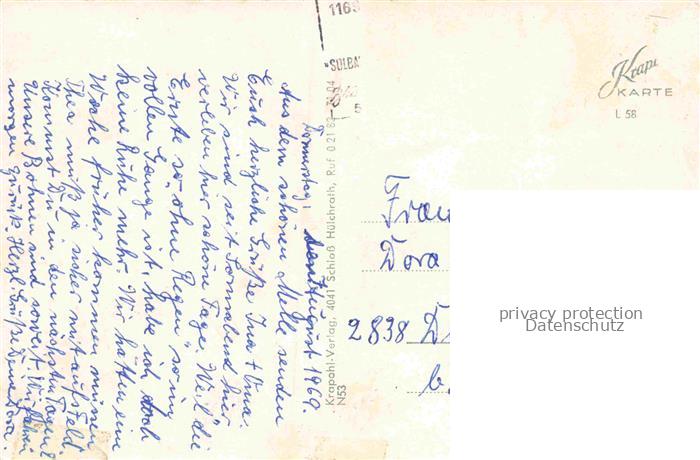 1169
"SOLBA
Krapi
KARTE
L 58
Donnerstag, 7. August 1969.
Aus dem schönen Melle senden
Euch herzliche Grüße Ina + Oma.
Wir sind seit Sonnabend hier
verleben hier schöne Tage. Weil die
Ernte so "ohne Regen" so im
vollen Gange ist, habe ich doch
keine Ruhe mehr. Wir hätten eine
Woche früher kommen müssen
Thea muß ja sicher mit aufs Feld.
Kommst Du in den nächsten Tagen?
Unsere Bohnen sind soweit. Wir fahren
morgen zurück. Herzl. Grüße
Krapohl-Verlag, 4041 Schloß Hülchrath, Ruf 0 21 82
N53
Frau
Dora
2838
b.
privacy protection
Datenschutz